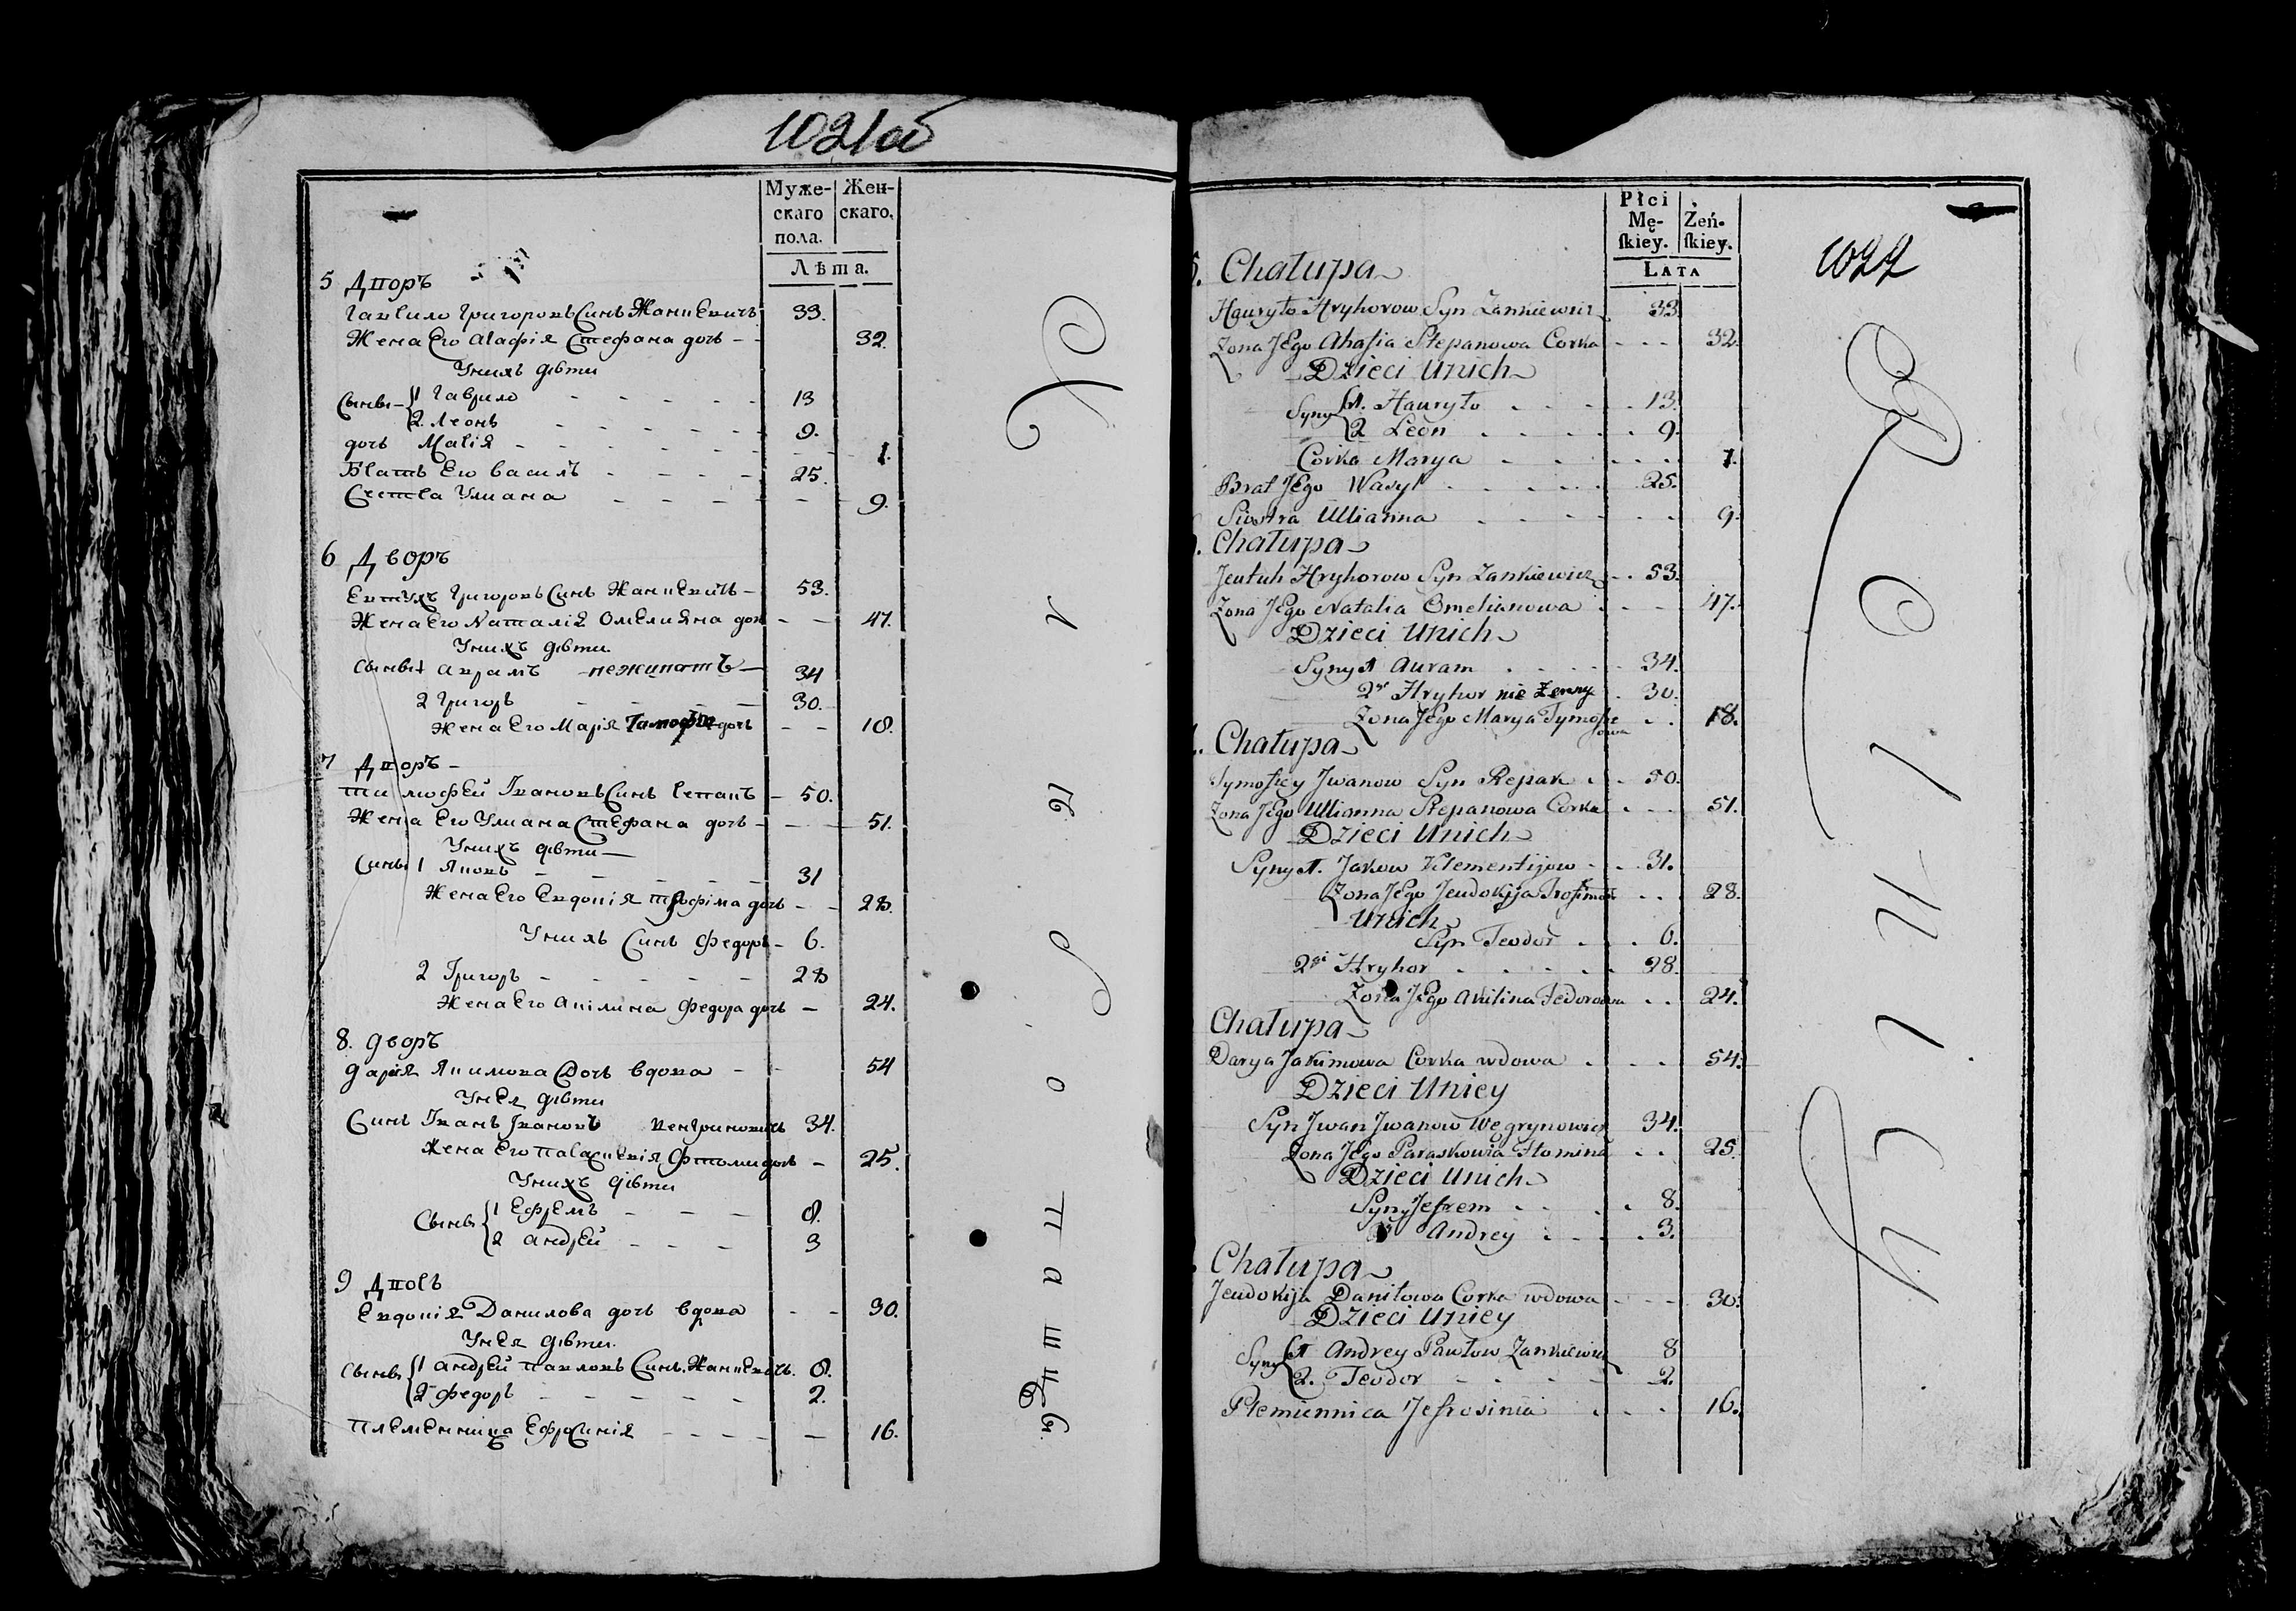 1021об
Муже-
скаго
пола.
Жен-
скаго.
Лѣта.
5 Дворъ
Гаврило Григоровъ Синъ Жанкевичъ 33.
Жена Его Агафія Стефана дочъ - - 32.
Унихъ дѣти
Сынъ 1 Гаврило - - - - - 13
2. Леонъ - - - - - 9.
дочъ Марія - - - - - 1.
Братъ Его Василъ - - - - 25.
Сестра Улиана - - - - - 9.
6 Дворъ
Евтухъ Григоровъ Синъ Жанкевичъ - 53.
Жена Его Наталія Омелияна доч - - 47.
Унихъ дѣти.
Сынъ 1 Аврамъ - нежинатъ - 34
2 Григоръ - - - 30.
Жена Его Марія дочъ - - 18.
7 Дворъ -
Тимофей Івановъ Синъ Репакъ - 50.
Жена Его Улиана Стефана дочъ - - 51.
Унихъ дѣти -
Синъ 1 Яковъ - - - - 31
Жена Его Евдокія Трофіма дочъ - - 28.
Унихъ Синъ Федоръ - 6.
2 Григоръ - - - - - 28
Жена Его Акіліна Федора дочъ - 24.
8. Дворъ
Дарія Якимова Дочъ вдова - - 54
Унея дѣти
Синъ Іванъ Івановъ Венгриновичъ 34.
Жена Его Параскевія Фтоми дочъ - 25.
Унихъ дѣти
Сынъ 1 Ефремъ - - - 8.
2 Андрей - - - 3
9 Дворъ
Евдокія Данилова дочъ вдова - - 30.
Унея дѣти.
Сынъ 1 Андрей Павловъ Синъ Жанкевичъ. 8.
2 Федоръ - - - - - 2.
Племенница Ефросинія - - - - - 16.
Płci
Mę-
ſkiey.
Żeń-
ſkiey.
LATA
1022
5. Chałupa
Hauryło Hryhorow Syn Zankiewicz 33.
Zona JEgo Ahafia Stepanowa Corka - - - 32.
Dzieci Unich
Syny 1. Hauryło . . . . 13.
2 Leon . . . . . 9.
Corka Marya . . . . . 1.
Brat JEgo Wasyl . . . . . 25.
Siostra Ullianna . . . . . 9.
. Chałupa
Jeutuh Hryhorow Syn Zankiewicz . . 53.
Zona JEgo Natalia Omelianowa . - - - 47.
Dzieci Unich
Syny 1 Auram . . . . . 34.
2gi Hryhor nie Żenny . 30.
Zona JEgo Marya Tymofie . . 18.
owa
. Chałupa
Tymofiey Jwanow Syn Repak . . . 50.
Zona JEgo Ullianna Stepanowa Corka . . - 51.
Dzieci Unich
Syny 1. Jakow Klementijow - . . 31.
Zona JEgo Jeudokija . . . 28.
Unich
Syn Teodor . . . 6.
2gi Hryhor . . . . . 28.
Zona JEgo Akilina Fedorowna . . 24.
Chałupa
Darya Jakimowa Corka wdowa . . . . 54.
Dzieci Uniey
Syn Jwan Jwanow Węgrynowicz 34.
Zona JEgo Paraskowia Ftomina . . 25.
Dzieci Unich
Syny Jefrem . . . . 8.
Andrey . . . . 3.
. Chałupa
Jeudokija Daniłowa Corka wdowa - - - 30.
Dzieci Uniey
Syny 1 Andrey Pawłow Zankiewicz 8
2. Teodor - - - - 2.
Plemiennica Jefrosinia . . . . 16.